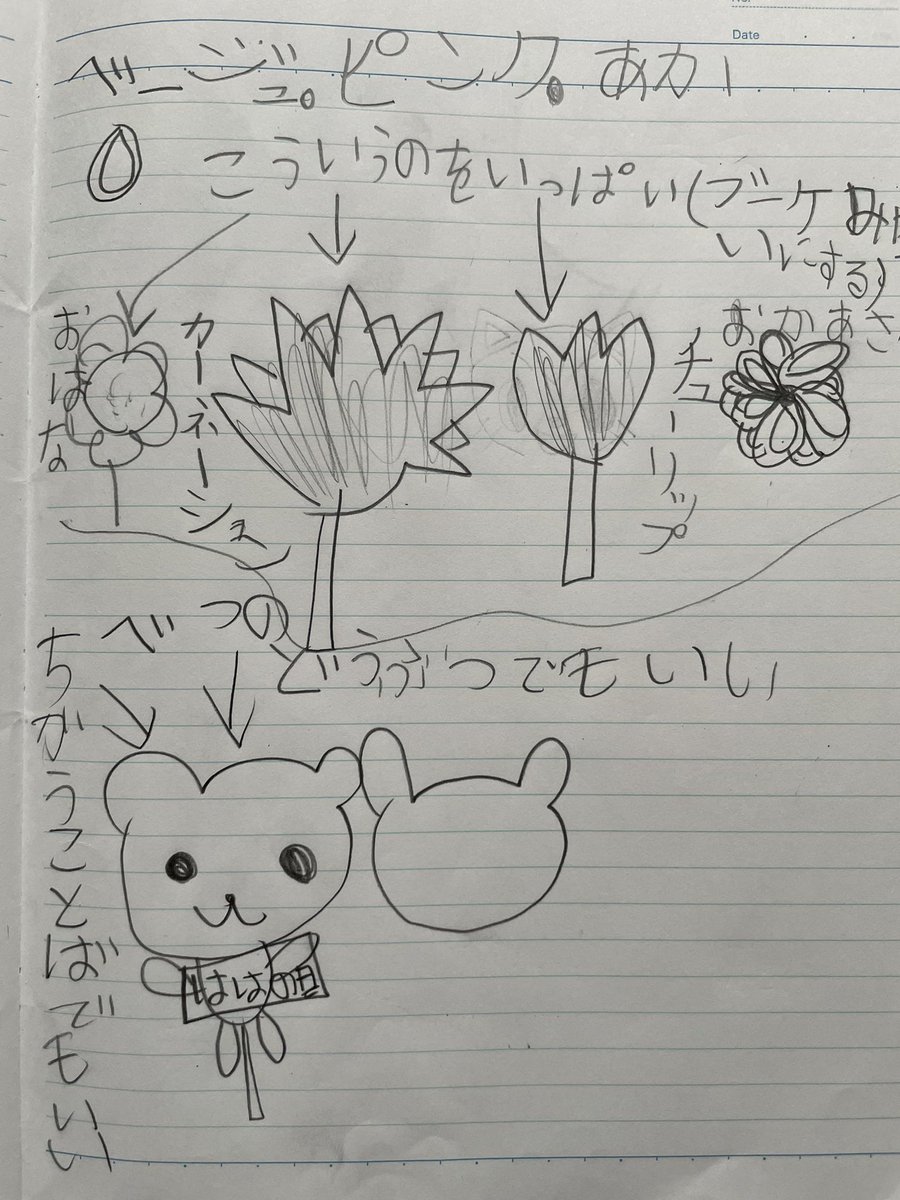 Date
ベージュ。ピンク。あか
こういうのをいっぱい(ブーケみた
いにする)
おはな
カーネーション
チューリップ
おかあさ
べつのどうぶつでもいい
ちがうことばでもいい
ははの日